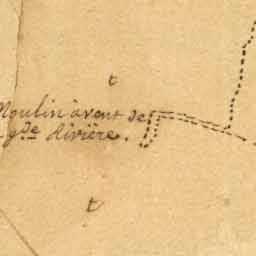 t
Moulin à vent de
gde Rivière.
t